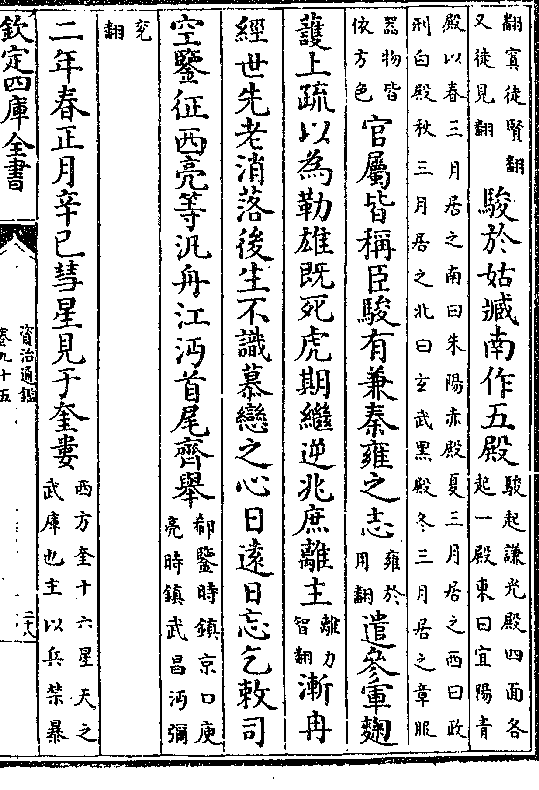 翻賓徒賢翻
又徒見翻
駿於姑臧南作五殿
駿起謙光殿四面各
起一殿東曰宜陽青
殿以春三月居之南曰朱陽赤殿夏三月居之西曰政
刑白殿秋三月居之北曰玄武黑殿冬三月居之章服
器物皆
依方色
官屬皆稱臣駿有兼秦雍之志
雍於
用翻
遣參軍麴
護上疏以為勒雄既死虎期繼逆兆庶離主
離力
智翻
漸冉
經世先老消落後生不識慕戀之心日遠日忘乞敕司
空鑒征西亮等汎舟江沔首尾齊舉
郗鑒時鎮京口庾
亮時鎮武昌沔彌
兖
翻
二年春正月辛巳彗星見于奎婁
西方奎十六星天之
武庫也主以兵禁暴
欽定四庫全書
資治通鑑
卷九十五
二十八